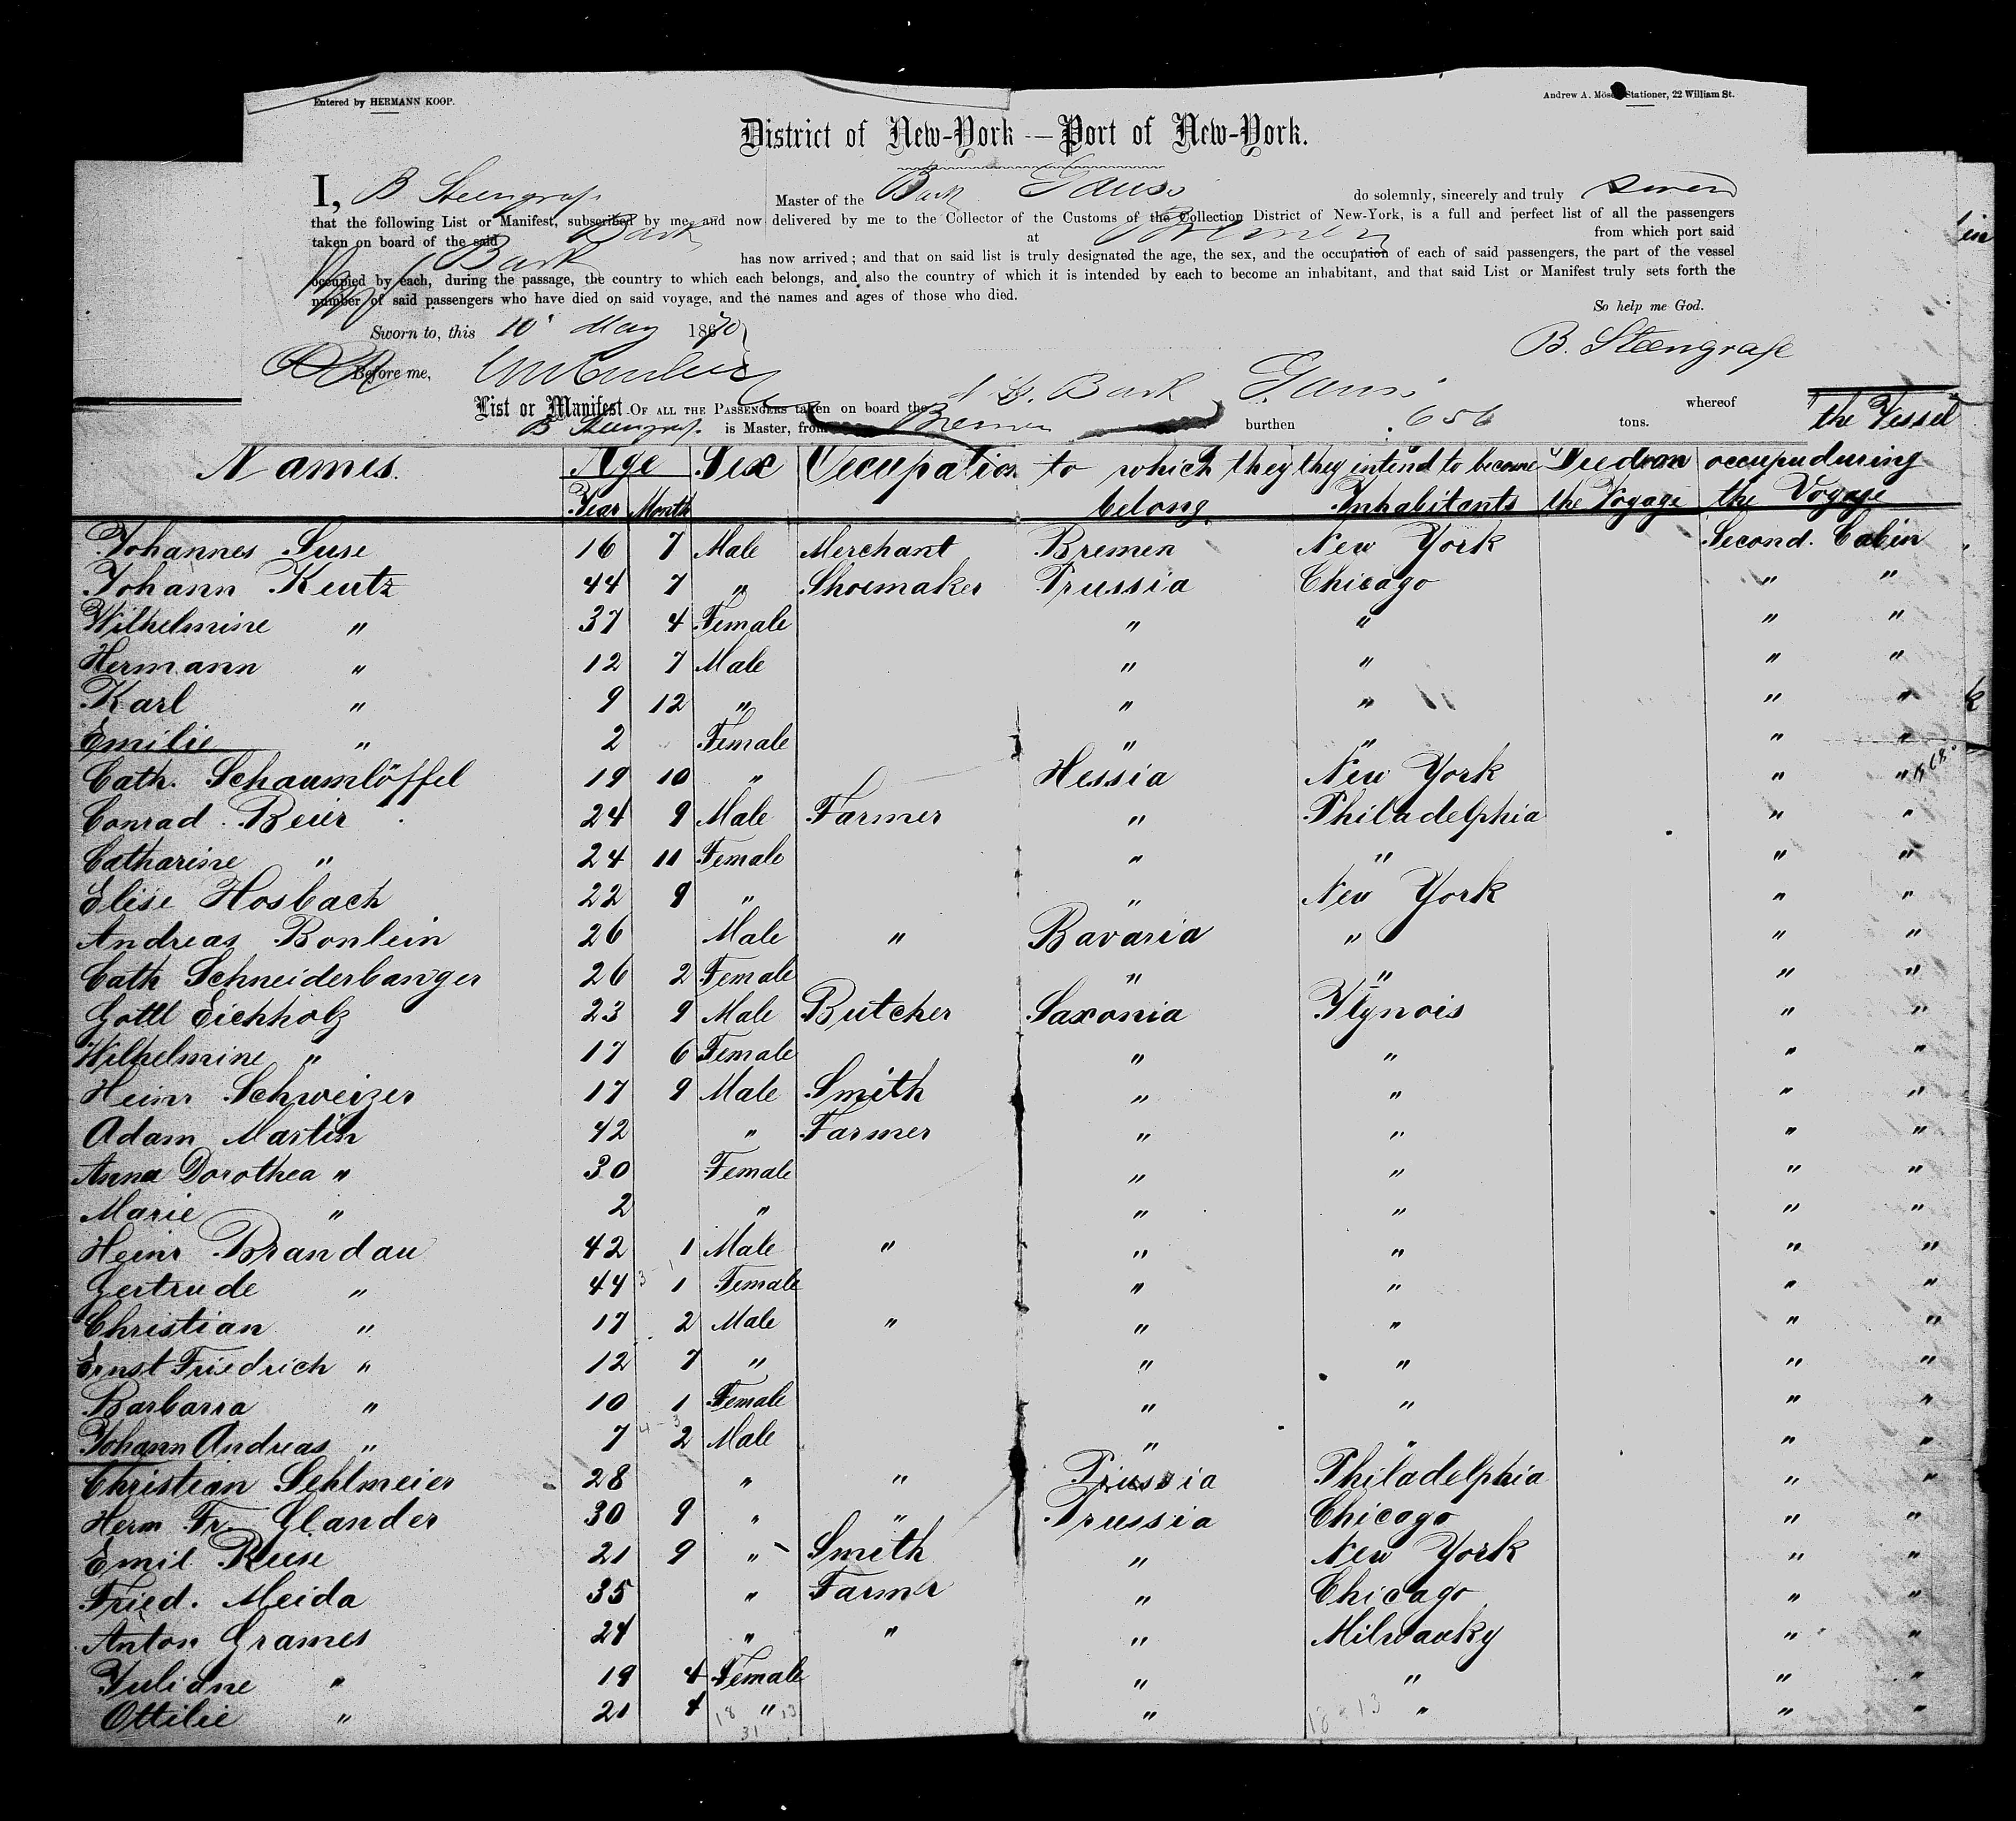 Entered by HERMANN KOOP.
Andrew A. Stationer, 22 William St.
District of New-York — Port of New-York.
I, B Steengrafe Master of the Bark Gauss do solemnly, sincerely and truly swear
that the following List or Manifest, subscribed by me, and now delivered by me to the Collector of the Customs of the Collection District of New-York, is a full and perfect list of all the passengers
taken on board of the said Bark at Bremen from which port said
Bark has now arrived; and that on said list is truly designated the age, the sex, and the occupation of each of said passengers, the part of the vessel
occupied by each, during the passage, the country to which each belongs, and also the country of which it is intended by each to become an inhabitant, and that said List or Manifest truly sets forth the
number of said passengers who have died on said voyage, and the names and ages of those who died.
So help me God.
Sworn to, this 10 May 1870
B. Steengrafe
Before me,
List or Manifest OF ALL THE PASSENGERS taken on board the Bark Gauss whereof
B Steengrafe is Master, from Bremen burthen 656 tons.
the Vessel
Names. Age Sex Occupation to which they they intend to become Died on occupu during
Year Month belong Inhabitants the Voyage the Voyage
Johannes Suse 16 7 Male Merchant Bremen New York Second. Cabin
Johann Keutz 44 7 " Shoemaker Prussia Chicago " "
Wilhelmine " 37 4 Female " " " "
Hermann " 12 7 Male " " " "
Karl " 9 12 " " " " "
Emilie " 2 Female " " " "
Cath. Schaumlöffel 19 10 " Hessia New York " "
Conrad Beier 24 9 Male Farmer " Philadelphia " "
Catharine " 24 11 Female " " " "
Elise Hosbach 22 9 " " New York " "
Andreas Bonlein 26 Male " Bavaria " " "
Cath Schneiderbanger 26 2 Female " " " "
Gottl Eichholz 23 9 Male Butcher Saxonia Ylynois " "
Wilhelmine " 17 6 Female " " " "
Heinr Schweizer 17 9 Male Smith " " " "
Adam Martin 42 " Farmer " " " "
Anna Dorothea " 30 Female " " " "
Marie " 2 " " " " "
Heinr Brandau 42 1 Male " " " " "
Gertrude " 44 1 Female " " " "
Christian " 17 2 Male " " " " "
Ernst Friedrich " 12 7 " " " " "
Barbarra " 10 1 Female " " " "
Johann Andreas " 7 2 Male " " " "
Christian Sehlmeier 28 " " Prussia Philadelphia " "
Herm Fr. Glander 30 9 " " Prussia Chicago " "
Emil Ruse 21 9 " Smith " New York " "
Fried. Meida 35 " Farmer " Chicago " "
Anton Grames 24 " " " Milwauky " "
Juliane " 19 4 Female " " " "
Ottilie " 21 4 " " " " "
18 13
31
18-13